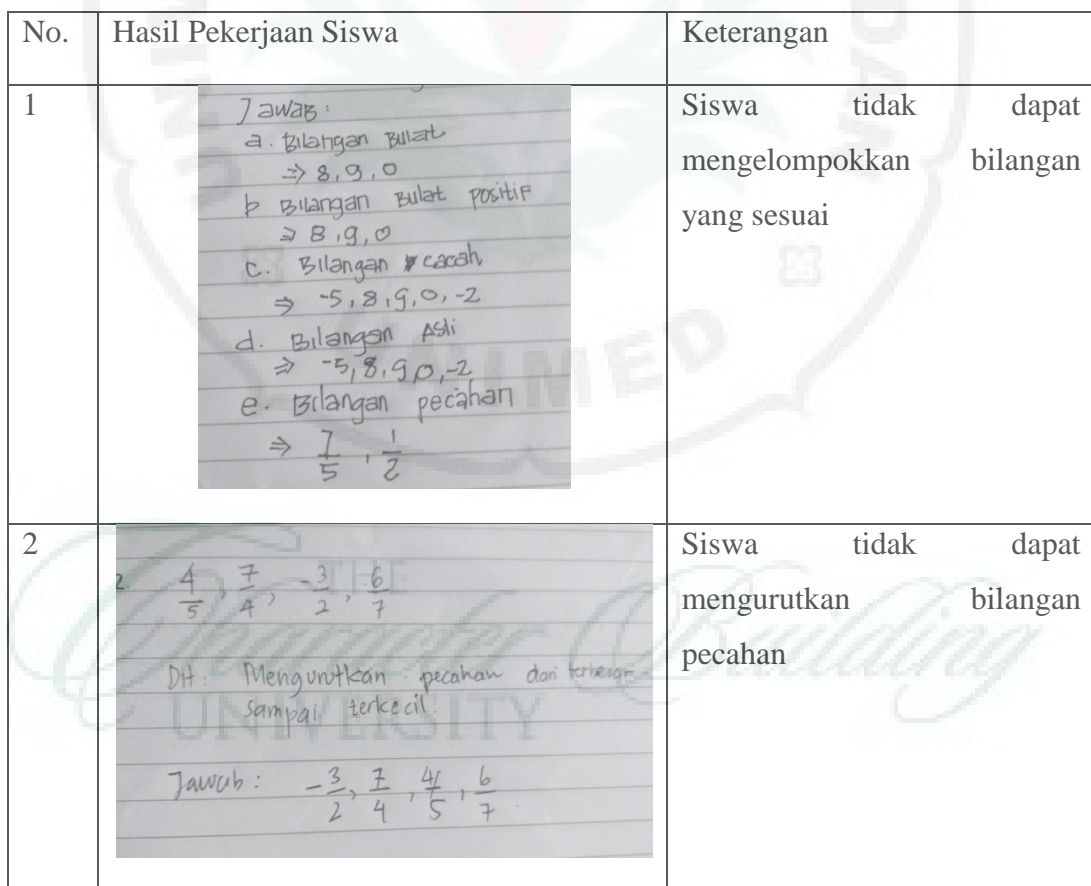 No. Hasil Pekerjaan Siswa Keterangan
1
Jawab:
a. Bilangan Bulat
⇒ 8, 9, 0
b Bilangan Bulat positif
⇒ 8, 9, 0
c. Bilangan cacah
⇒ -5, 8, 9, 0, -2
d. Bilangan Asli
⇒ -5, 8, 9, 0, -2
e. Bilangan pecahan
⇒ 7/5, 1/2
Siswa tidak dapat
mengelompokkan bilangan
yang sesuai
2
2. 4/5, 7/4, -3/2, 6/7
Dit: Mengurutkan pecahan dari terbesar
sampai terkecil.
Jawab: -3/2, 7/4, 4/5, 6/7.
Siswa tidak dapat
mengurutkan bilangan
pecahan
UNIMED
THE
Character Building
UNIVERSITY